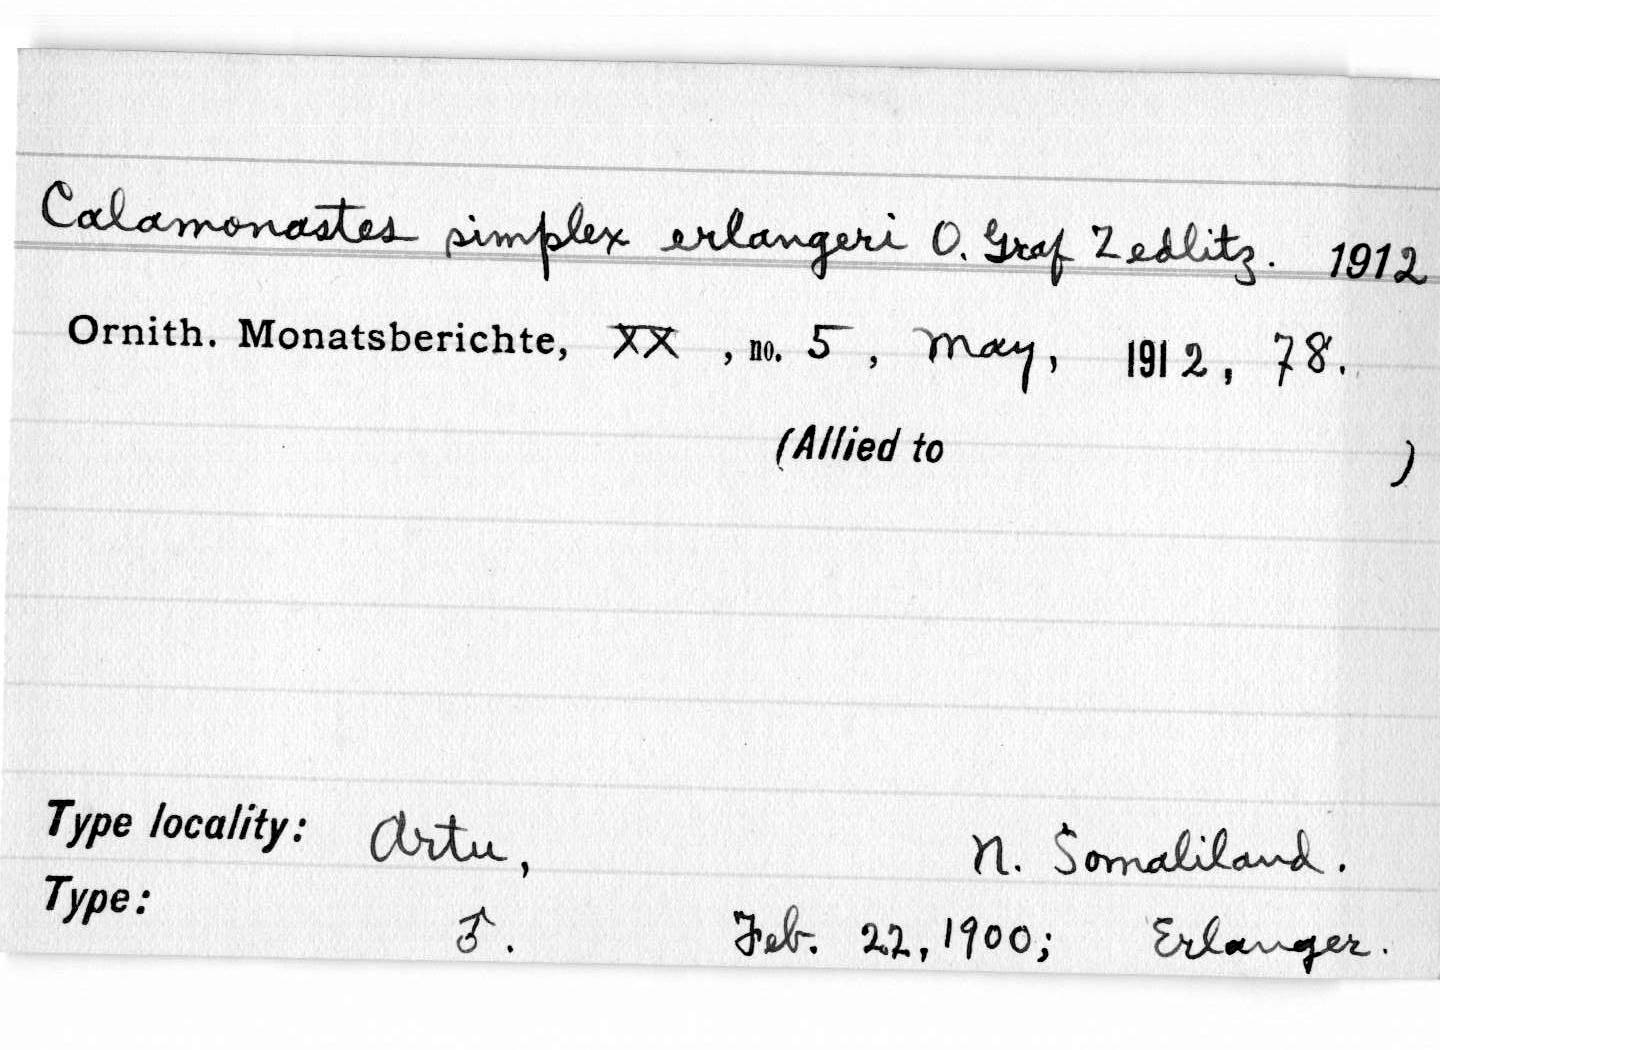 Calamonastes simplex erlangeri O. Graf Zedlitz. 1912
Ornith. Monatsberichte, XX, no. 5, May, 1912, 78.
(Allied to )
Type locality: Artu, N. Somaliland.
Type: ♂. Feb. 22, 1900; Erlanger.